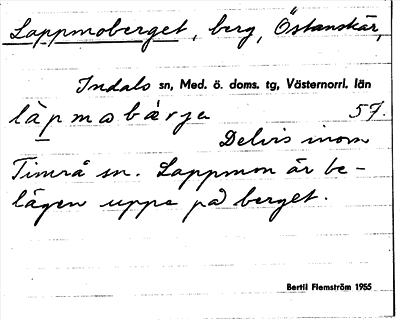 Lappmoberget, berg, Östanskär,
Indals sn, Med. ö. doms. tg, Västernorrl. län
làpmabær̀ja 57.
Delvis inom
Timrå sn. Lappmon är be-
lägen uppe på berget.
Bertil Flemström 1955